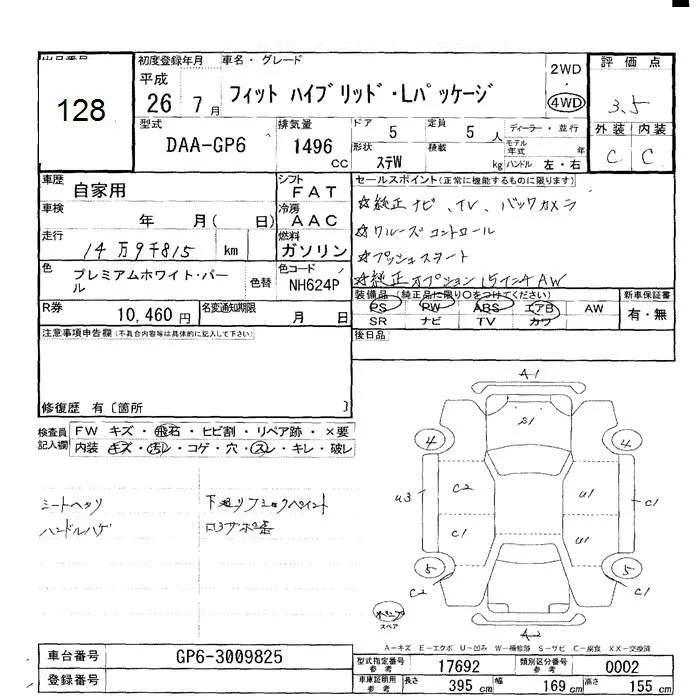 出品番号
128
初度登録年月
平成
26 7月
車名・グレード
フィット ハイブリッド・Lパッケージ
2WD
・
4WD
評価点
3.5
外装 内装
C C
型式
DAA-GP6
排気量
1496
cc
ドア 5
形状 ステW
定員 5 人
積載 kg
ディーラー・並行
モデル年式 年
ハンドル 左・右
車歴
自家用
シフト
FAT
車検
年 月( 日)
冷房
AAC
走行
14万9千815 km
燃料
ガソリン
色
プレミアムホワイト・パール
色替
色コード
NH624P
R券
10,460 円
名変通知期限
月 日
セールスポイント(正常に機能するものに限ります)
☆純正ナビ、TV、バックカメラ
☆クルーズコントロール
☆プッシュスタート
☆純正オプション15インチAW
装備品(純正品に限り○をつけてください)
PS PW ABS エアB AW
SR ナビ TV カワ
新車保証書
有・無
後日品
注意事項申告欄(不具合内容等は具体的に記入して下さい)
修復歴 有〔箇所 〕
検査員記入欄
FW キズ・飛石・ヒビ割・リペア跡・×要
内装 キズ・汚レ・コゲ・穴・スレ・キレ・破レ
シートヘタリ
ハンドルハゲ
A1
S1
4 4
U3 C2 U1 C1
C1 U1
5 5
C2 C1
スペア
A2
A-キズ E-エクボ U-凹み W-補修跡 S-サビ C-腐食 XX-交換済
車台番号
GP6-3009825
登録番号
型式指定番号 参考 17692
類別区分番号 参考 0002
車庫証明用 参考
長さ 395 cm
幅 169 cm
高さ 155 cm